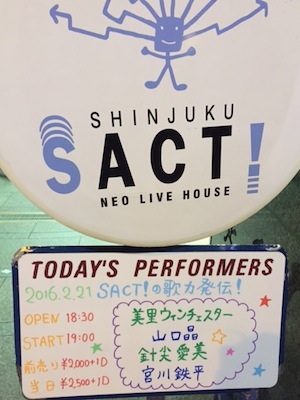 SHINJUKU
SACT!
NEO LIVE HOUSE
TODAY'S PERFORMERS
2016.2.21 SACT!の歌力発伝!
OPEN 18:30
START 19:00
前売り ¥2,000+1D
当日 ¥2,500+1D
美里ウィンチェスター
山口晶
針尖愛美
宮川鉄平